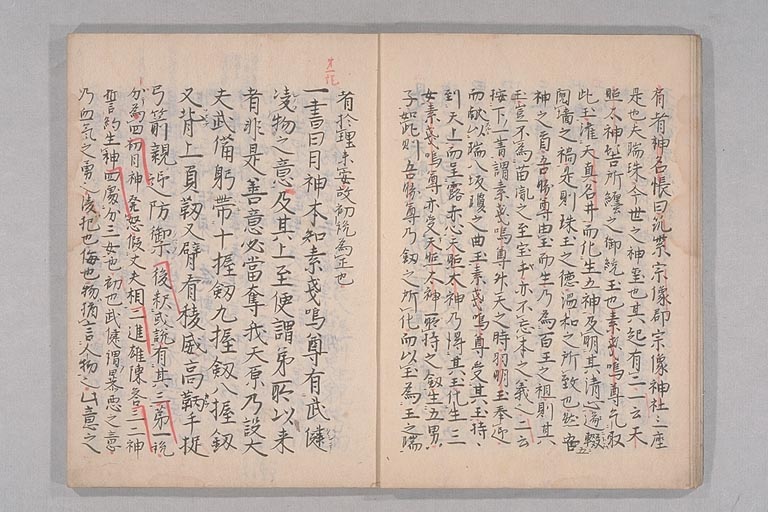 有者神名帳曰筑紫宗像郡宗像神社三座
是也夫瑞珠今世之神璽也其起有二一云天
照太神髻所纏之御統玉也素戔嗚尊乞取
此玉濯天真名井而化生五神及明其清心遂
閲墻之禍是則珠玉之德温和之所致也然
神之首吾勝尊由玉而生乃為百王之祖則其
玉豈不為百之至宝乎亦不忘本之義也二云
按下一書謂素戔嗚尊昇天之時羽明玉奉迎
而献以瑞八坂瓊之曲玉素戔嗚尊受其玉持
到天上而呈露赤心天照太神乃得其玉化生三
女素戔嗚尊亦受天照太神所持之釼生五男
子如此則吾勝尊乃釼之所化而以玉為王之瑞
者於理未安故初説為正也
第一説
一書曰日神本知素戔嗚尊有武健
凌物之意及其上至便謂弟所以来
者非是善意必當奪我天原乃設大
夫武備躬帶十握釼九握釼八握釼
又背上負靫又臂有稜威高鞆手捉
弓箭親迎防禦後説有其三第一説
分為四初日神発怒假丈夫相二進雄陳答三二神
誓約生神四處分三女也初也武健謂暴悪之意
乃血気之勇凌犯也侮也物猶言人物之凶意之